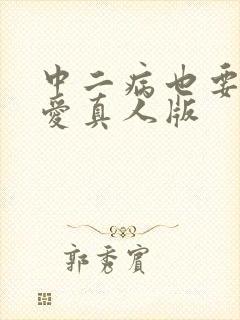 中二病也要
愛真人版
郭秀賓